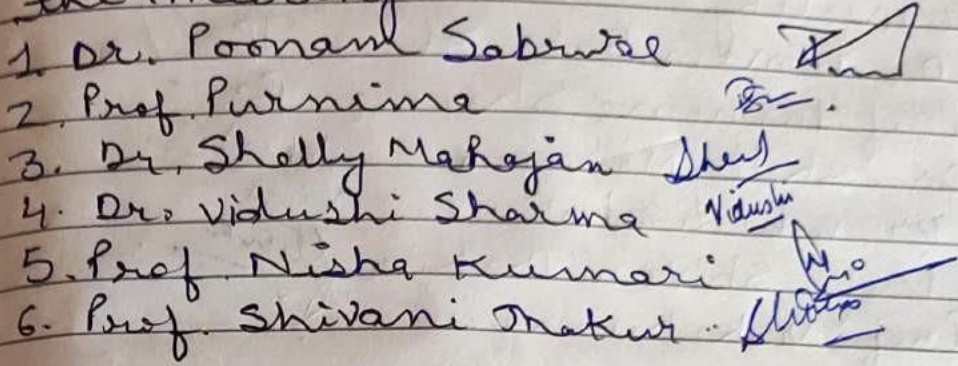 the meeting
1. Dr. Poonam Sabrwal
2. Prof. Purnima
3. Dr. Shelly Mahajan
4. Dr. Vidushi Sharma Vidushi
5. Prof. Nisha Kumari
6. Prof. Shivani Thakur